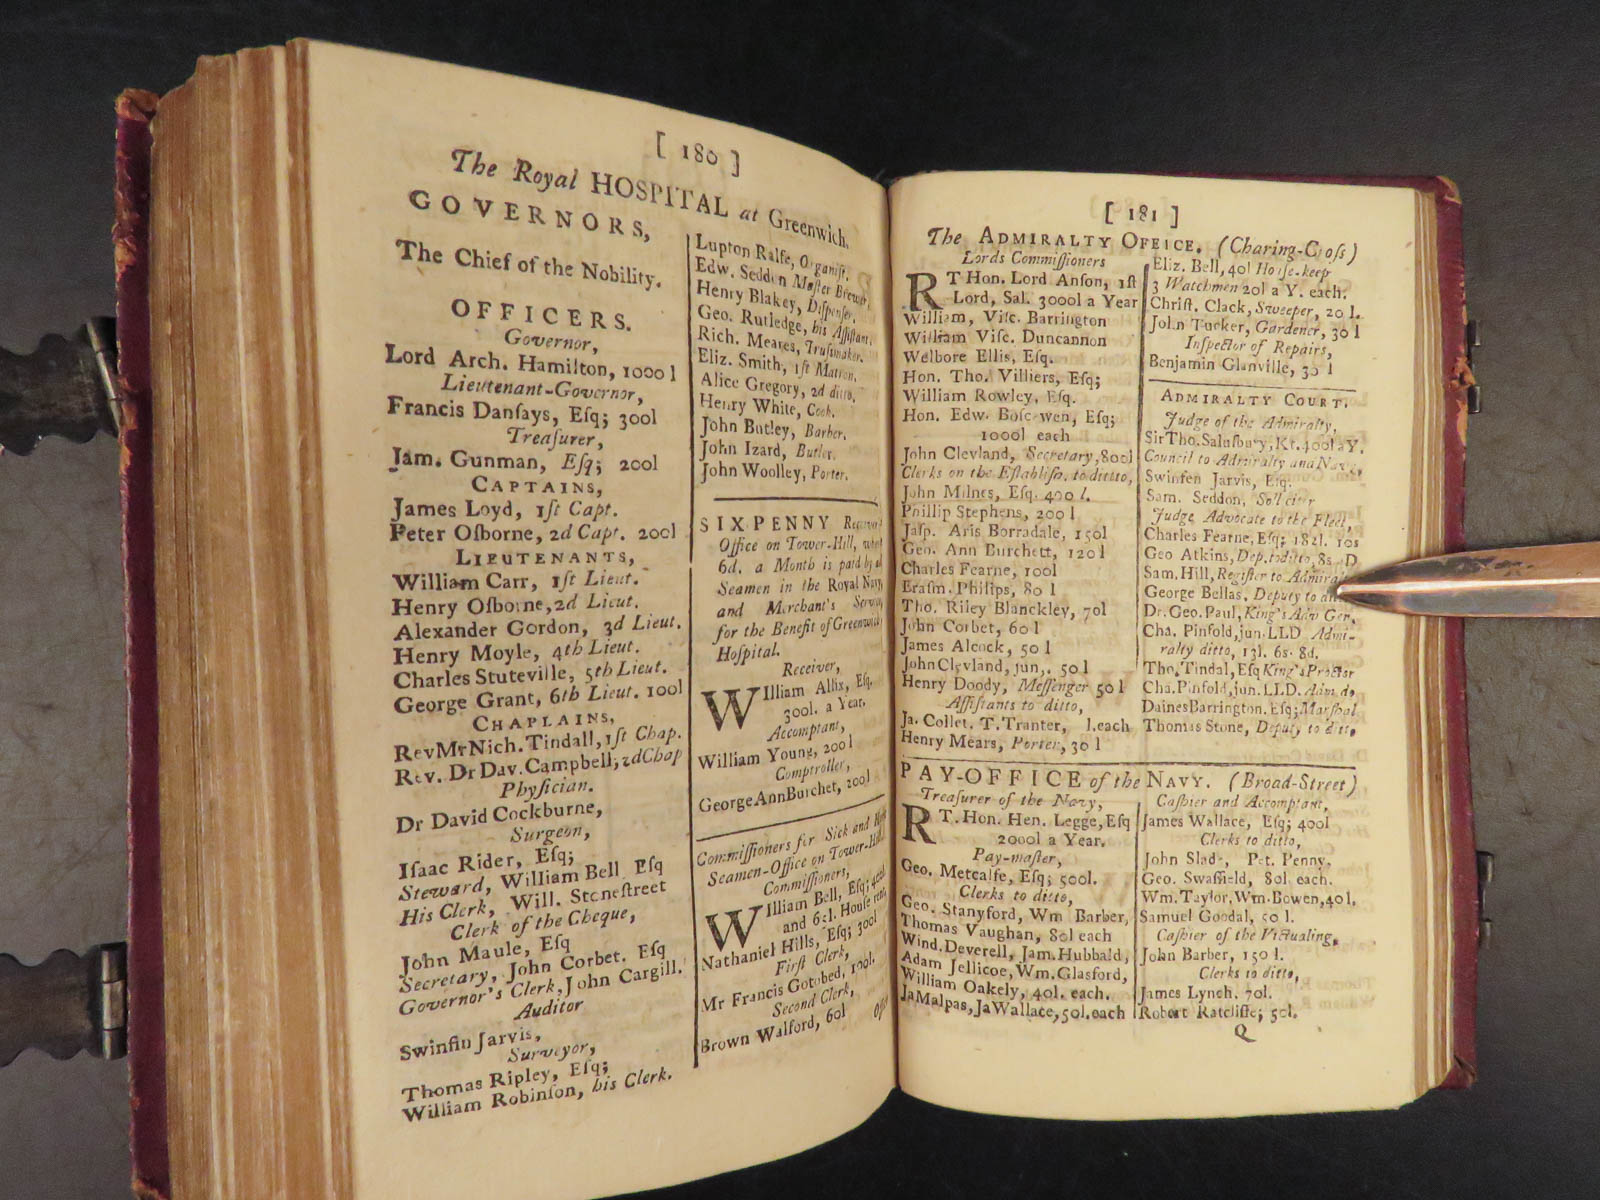 [ 180 ]
The Royal HOSPITAL at Greenwich.
GOVERNORS,
The Chief of the Nobility.
OFFICERS.
Governor,
Lord Arch. Hamilton, 1000 l
Lieutenant-Governor,
Francis Danſays, Eſq; 300l
Treaſurer,
Jam. Gunman, Eſq; 200l
CAPTAINS,
James Loyd, 1ſt Capt.
Peter Oſborne, 2d Capt. 200l
LIEUTENANTS,
William Carr, 1ſt Lieut.
Henry Oſborne, 2d Lieut.
Alexander Gordon, 3d Lieut.
Henry Moyle, 4th Lieut.
Charles Stuteville, 5th Lieut.
George Grant, 6th Lieut. 100l
CHAPLAINS,
Rev Mr Nich. Tindall, 1ſt Chap.
Rev. Dr Dav. Campbell, 2d Chap
Phyſician.
Dr David Cockburne,
Surgeon,
Iſaac Rider, Eſq;
Steward, William Bell Eſq
His Clerk, Will. Stoneſtreet
Clerk of the Cheque,
John Maule, Eſq
Secretary, John Corbet. Eſq
Governor's Clerk, John Cargill.
Auditor
Swinfin Jarvis,
Surveyor,
Thomas Ripley, Eſq;
William Robinſon, his Clerk.
Lupton Ralfe, Organiſt.
Edw. Seddon Maſter Brewer,
Henry Blakey, Diſpenſer.
Geo. Rutledge, his Aſſiſtant.
Rich. Meares, Truſsmaker.
Eliz. Smith, 1ſt Matron.
Alice Gregory, 2d ditto,
Henry White, Cook.
John Butley, Barber.
John Izard, Butler.
John Woolley, Porter.
SIXPENNY
Office on Tower-Hill,
6d. a Month is paid by
Seamen in the Royal Navy,
and Merchant's
for the Benefit of Greenwich
Hoſpital.
Receiver,
William Allix, Eſq.
300l. a Year.
Accomptant,
William Young, 200 l
Comptroller,
George Ann Burchet, 200l
Commiſſioners for Sick and
Seamen-Office on Tower-Hill
Commiſſioners,
William Bell, Eſq; 400l
and 65l. Houſe rent
Nathaniel Hills, Eſq; 300l
Firſt Clerk,
Mr Francis Gotobed, 100l.
Second Clerk,
Brown Walford, 60l
[ 181 ]
The ADMIRALTY OFFICE. (Charing-Croſs)
Lords Commiſſioners
RT Hon. Lord Anſon, 1ſt
Lord, Sal. 3000l a Year
William, Viſc. Barrington
William Viſc. Duncannon
Welbore Ellis, Eſq.
Hon. Tho. Villiers, Eſq;
William Rowley, Eſq.
Hon. Edw. Boſcawen, Eſq;
1000l each
John Clevland, Secretary, 800l
Clerks on the Eſtabliſh. to ditto,
John Milnes, Eſq. 400 l.
Phillip Stephens, 200 l
Jaſp. Aris Borradale, 150l
Geo. Ann Burchett, 120 l
Charles Fearne, 100l
Eraſm. Philips, 80 l
Tho. Riley Blanckley, 70l
John Corbet, 60 l
James Alcock, 50 l
John Clevland, jun,. 50 l
Henry Doody, Meſſenger 50 l
Aſſiſtants to ditto,
Ja. Collet. T. Tranter, l.each
Henry Mears, Porter, 30 l
Eliz. Bell, 40l Houſe-keep
3 Watchmen 20l a Y. each.
Chriſt. Clack, Sweeper, 20 l.
John Tucker, Gardener, 30 l
Inſpector of Repairs,
Benjamin Glanville, 30 l
ADMIRALTY COURT.
Judge of the Admiralty,
Sir Tho. Saluſbury, Kt. 400l a Y.
Council to Admiralty and Navy,
Swinfen Jarvis, Eſq.
Sam. Seddon, Solicitor
Judge Advocate to the Fleet,
Charles Fearne, Eſq; 182l. 10s
Geo Atkins, Dep. to ditto, 8s D
Sam. Hill, Regiſter to
George Bellas, Deputy to
Dr. Geo. Paul, King's Adv Gen.
Cha. Pinfold, jun. LLD Admi-
ralty ditto, 13l. 6s. 8d.
Tho. Tindal, Eſq King's Proctor
Cha. Pinfold, jun. LLD.
Daines Barrington. Eſq; Marſhal
Thomas Stone, Deputy to ditto,
PAY-OFFICE of the NAVY. (Broad-Street)
Treaſurer of the Navy,
RT. Hon. Hen. Legge, Eſq
2000l a Year.
Pay-maſter,
Geo. Metcalfe, Eſq; 500l.
Clerks to ditto,
Geo. Stanyford, Wm Barber,
Thomas Vaughan, 80l each
Wind. Deverell, Jam. Hubbald,
Adam Jellicoe, Wm. Glasford,
William Oakely, 40l. each.
Ja Malpas, Ja Wallace, 50l. each
Caſhier and Accomptant,
James Wallace, Eſq; 400l
Clerks to ditto,
John Slade, Pet. Penny,
Geo. Swaffield, 80l. each.
Wm. Taylor, Wm. Bowen, 40l.
Samuel Goodal,
Caſhier of the Victualing,
John Barber, 150 l.
Clerks to ditto,
James Lynch. 70l.
Robert Ratcliffe; 50l.
Q